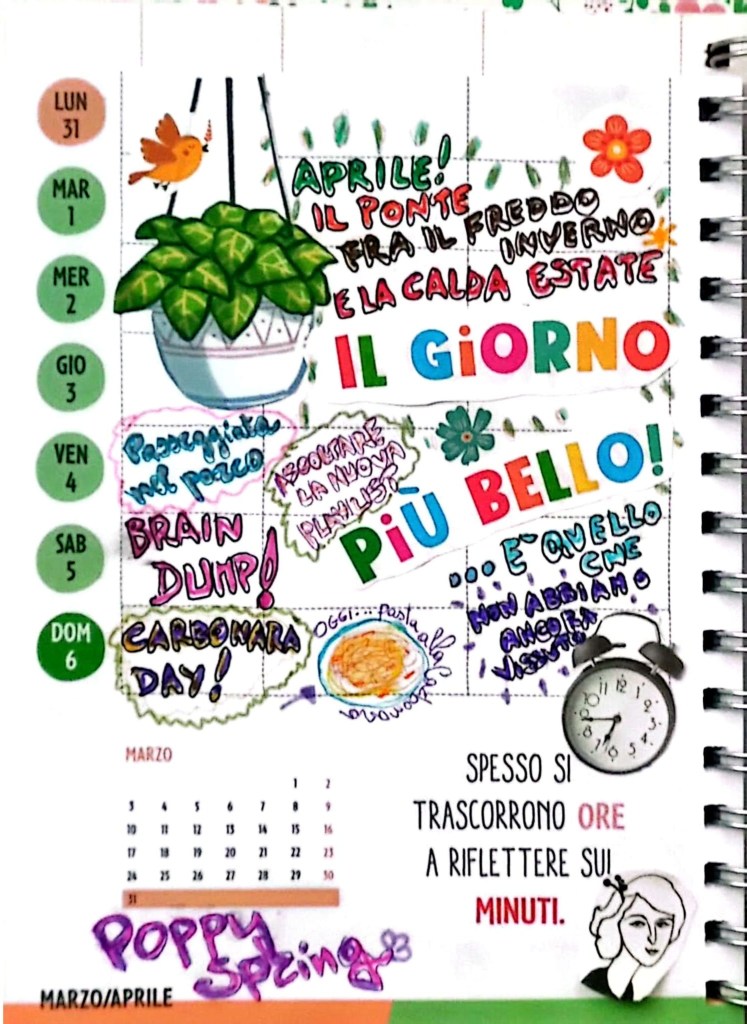 LUN
31
MAR
1
MER
2
GIO
3
VEN
4
SAB
5
DOM
6
APRILE!
IL PONTE
FRA IL FREDDO
INVERNO
E LA CALDA ESTATE
IL GiORNO
PiÙ BELLO!
... E' QUELLO
CHE
NON ABBIAMO
ANCORA
VISSUTO
Passeggiata
nel parco
ASCOLTARE
LA NUOVA
PLAYLIST
BRAIN
DUMP!
CARBONARA
DAY!
OGGI... pasta alla Carbonara
10 11 12 1 2 3 4 5 6 7 8
MARZO
1 2
3 4 5 6 7 8 9
10 11 12 13 14 15 16
17 18 19 20 21 22 23
24 25 26 27 28 29 30
31
SPESSO SI
TRASCORRONO ORE
A RIFLETTERE SUI
MINUTI.
POPPY
Spring
MARZO/APRILE